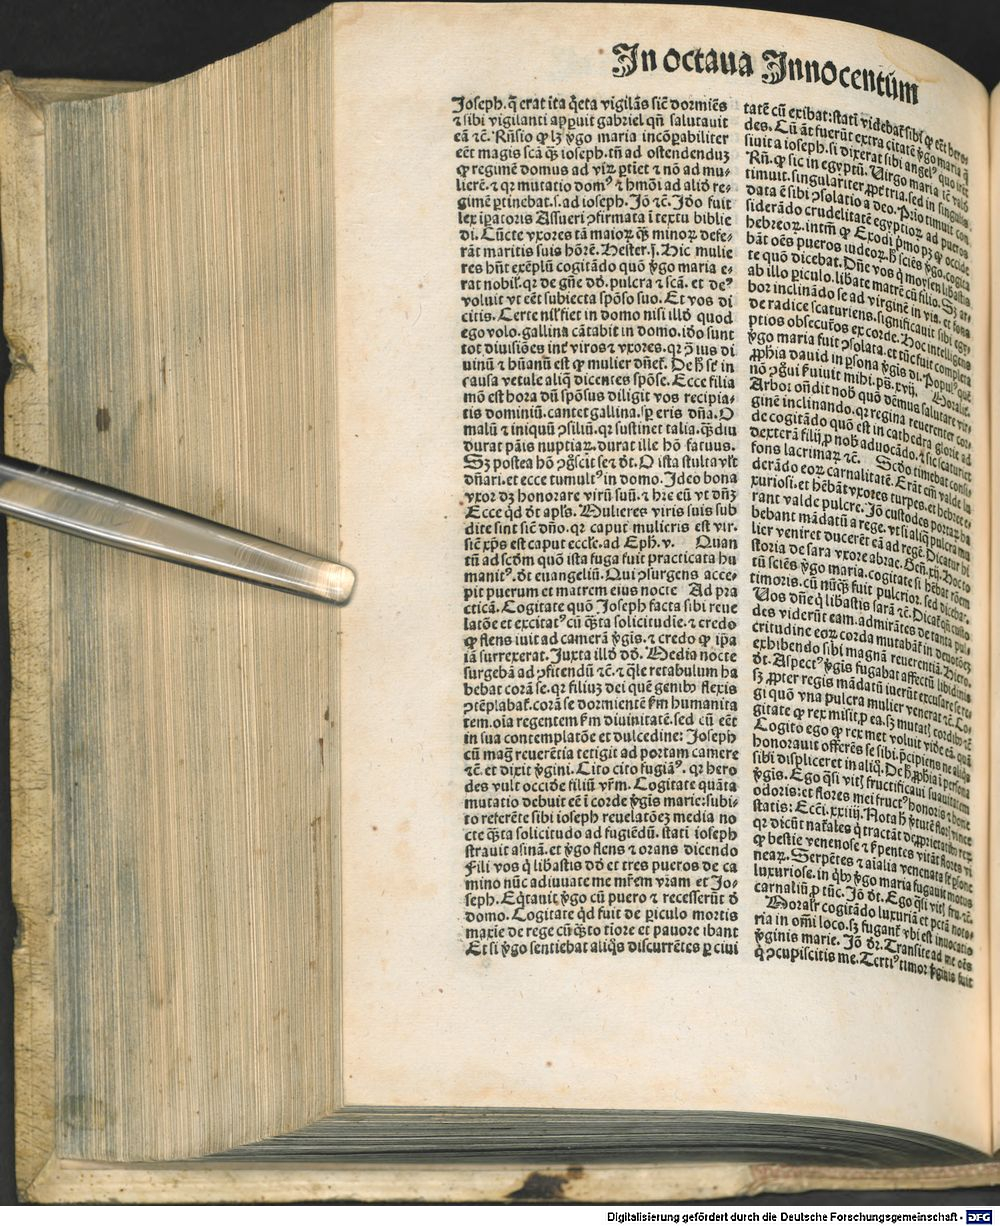 In octaua Innocentūm
Joseph. q̄ erat ita q̄eta vigilās sic̄ dormiēs
⁊ sibi vigilanti apꝑuit gabriel qn̄ salutauit
eā ⁊c̄. Rn̄sio ꝙ lꝫ v̄go maria incōꝑabiliter
eēt magis scā qꝫ̄ ioseph. tn̄ ad ostendenduꝫ
ꝙ regimē domus ad viꝝ ꝑtiet ⁊ nō ad mu-
lierē. ⁊ qꝛ mutatio domꝰ ⁊ hmōi ad aliō re-
gimē ꝑtinebat. s. ad ioseph. Jō ⁊c̄. Jdō fuit
lex iꝑatoris Assueri ꝯfirmata ī textu biblie
di. Cūcte vxores tā maioꝝ qꝫ̄ minoꝝ defe-
rāt maritis suis hōrē. Hester. j. Hic mulie
res hn̄t exēplū cogitādo quō v̄go maria e-
rat nobil. qꝛ de gn̄e dd̄. pulcra ⁊ scā. et deꝰ
voluit vt eēt subiecta spōso suo. Et vos di
citis. Certe nil fiet in domo nisi illd̄ quod
ego volo. gallina cātabit in domo. idō sunt
tot diuisiōes int̄ viros ⁊ vxores. qꝛ ꝯ̄ ius di
uinū ⁊ hūanū est ꝙ mulier dn̄et̄. De h̄ sr̄ in
causa vetule aliq̄ dicentes spōse. Ecce filia
mō est hora dū spōsus diligit vos recipia-
tis dominiū. cantet gallina. sꝑ eris dn̄a. O
malū ⁊ iniquū ꝯsiliū. qꝛ sustinet talia. qꝫ̄diu
durat pāis nuptiaꝝ. durat ille hō fatuus.
Sꝫ postea hō ꝯgscit se ⁊ dt̄. O ista stulta vlt̄
dn̄ari. et ecce tumultꝰ in domo. Jdeo bona
vxor dꝫ honorare virū suū. ⁊ hr̄e eū vt dn̄ꝫ
Ecce qd̄ dt̄ apls̄. Mulieres viris suis sub
dite sint sic̄ dn̄o. qꝛ caput mulieris est vir.
sic̄ xp̄s est caput eccle̅. ad Eph. v. Quan
tū ad scd̄m quō ista fuga fuit practicata hu
manitꝰ. dt̄ euangeliū. Qui ꝯsurgens acce-
pit puerum et matrem eius nocte Ad pra
cticā. Cogitate quō Joseph facta sibi reue
latōe et excitatꝰ cū qꝫ̄ta solicitudīe. ⁊ credo
ꝙ flens iuit ad camerā v̄gis. ⁊ credo ꝙ iꝑa
iā surrexerat. Juxta illd̄ dd̄. Media nocte
surgebā ad ꝯfitendū ⁊c̄. ⁊ q̄le retabulum ha
bebat corā se. qꝛ filiuꝫ dei quē genibꝰ flexis
ꝯtēplabat̄. corā se dormientē ẜm humanita
tem. oīa regentem ẜm diuinitatē. sed cū eēt
in sua contemplatōe et dulcedine: Joseph
cū mag̅ reuerētia tetigit ad portam camere
⁊c̄. et dixit v̄gini. Cito cito fugiāꝰ. qꝛ hero
des vult occide filiū vr̄m. Cogitate quāta
mutatio debuit eē ī corde v̄gis marie: subi-
to referēte sibi ioseph reuelatōeꝫ media no
cte qꝫ̄ta solicitudo ad fugiēdū. statī ioseph
strauit asinā. et v̄go flens ⁊ orans dicendo
Fili vos q̄ libastis dd̄ et tres pueros de ca
mino nūc adiuuate me mr̄em vr̄am et Jo-
seph. Eq̄tauit v̄go cū puero ⁊ recesserūt d̄
domo. Cogitate qd̄ fuit de ꝑiculo mortis
maxie de rege cū qꝫ̄to tiore et pauore ibant
Et si v̄go sentiebat aliq̄s discurrētes ꝑ ciui
tatē cū exibat: statī videbat̄ sibi ꝙ eēt hero-
des. Cū āt fuerūt extra citatē v̄go maria q̄
siuit a ioseph. si dixerat sibi angelꝰ quo iret
Rn̄. ꝙ sic in egyptū. Virgo maria ⁊c̄ valō
timuit. singulariter ꝓpe̅ tria. sed in singulis
data ē sibi ꝯsolatio a deo. Prio timuit con
siderādo crudelitatē egyptioꝝ ad pueros
hebreoꝝ. intm̄ ꝙ Exodi p̄mo pꝫ ꝙ occide
bāt oēs pueros iudeoꝝ. h̄ sciēs v̄go. cogita
te quō dicebat. Dn̄e vos q̄ moysen libastis
ab illo ꝑiculo. libate matrē cū filio. Sꝫ ar-
bor inclinādo se ad virginē in via. et fons
de radice scaturiens. significauit sibi egy-
ptios obsecuros ex corde. Hoc intelligens
v̄go maria fuit ꝯsolata. et tūc fuit completa
ꝓphīa dauid in ꝑsona v̄gis di. Populꝰ quē
nō ꝯgui ẜuiuit mihi. ps̄. xvij. Moralit̄.
Arbor on̄dit nob̄ quō dēmus salutare vir-
ginē inclinando. qꝛ regina reuerenter cor-
de cogitādo quō est in cathedra glorie ad
dexterā filij ꝑ nob̄ aduocādo. ⁊ sic scaturiet
fons lacrimaꝝ ⁊c̄. Scd̄o timebat consi-
derādo eoꝝ carnalitatē. Erāt em̄ valde lu
xuriosi. et hēbāt vxores turpes. et hebree e-
rant valde pulcre. Jō custodes portaꝝ ha
bebant mādatū a rege. vt si aliq̄ pulcra mu
lier veniret ducerēt eā ad regē. Dicatur hi
storia de sara vxore abrae. Gen̄. xij. Hoc to
tū sciēs v̄go maria. cogitate si hēbat rōem
timoris. cū nūqꝫ̄ fuit pulcrior. sed dicebat.
Vos dn̄e q̄ libastis sarā ⁊c̄. Dicat̄ qn̄ custo
des viderūt eam. admirātes de tanta pul-
critudine eoꝝ corda mutabāt̄ in deuotōeꝫ
exhibendo sibi magnā reuerentiā. Hiero.
dt̄. Aspectꝰ v̄gis fugabat affectū libidinis
sꝫ ꝓpter regis mādatū iuerūt excusare se re-
gi quō vna pulcra mulier venerat ⁊c̄. Co-
gitate ꝙ rex misit ꝑ ea. sꝫ mutatꝭ cordibꝰ ⁊c̄
Cogito ego ꝙ rex met voluit vide eā. quā
honorauit offerēs se sibi. p̄cipiens ne aliq̄s
sibi displiceret in aliq̄. De h̄ ꝓphīa ī persona
v̄gis. Ego q̄si vitꝭ fructificaui suauitatem
odoris: et flores mei fructꝰ honoris ⁊ hone
statis: Ecci. xxiiij. Nota h̄ v̄tutē floꝝ vinee
qꝛ dicūt nal̄es q̄ tractāt de ꝓprietatibꝰ reꝝ
ꝙ bestie venenose ⁊ ẜpentes vitāt flores vi
neaꝝ. Serpētes ⁊ aīalia venenata st̄ ꝑsone
luxuriose. in qibꝰ v̄go maria fugauit motus
carnaliū ꝑ tūc. Jō dt̄. Ego q̄si vitꝭ fru. ⁊c̄.
Moralr̄ cogitādo luxuriā et pctā noto-
ria in omī loco. sꝫ fugant̄ vbi est inuocatio
v̄ginis marie. Jō dr̄. Transite ad me oēs
q̄ ꝯcupiscitis me. Tertiꝰ timor v̄ginis fuit
Digitalisierung gefördert durch die Deutsche Forschungsgemeinschaft - DFG